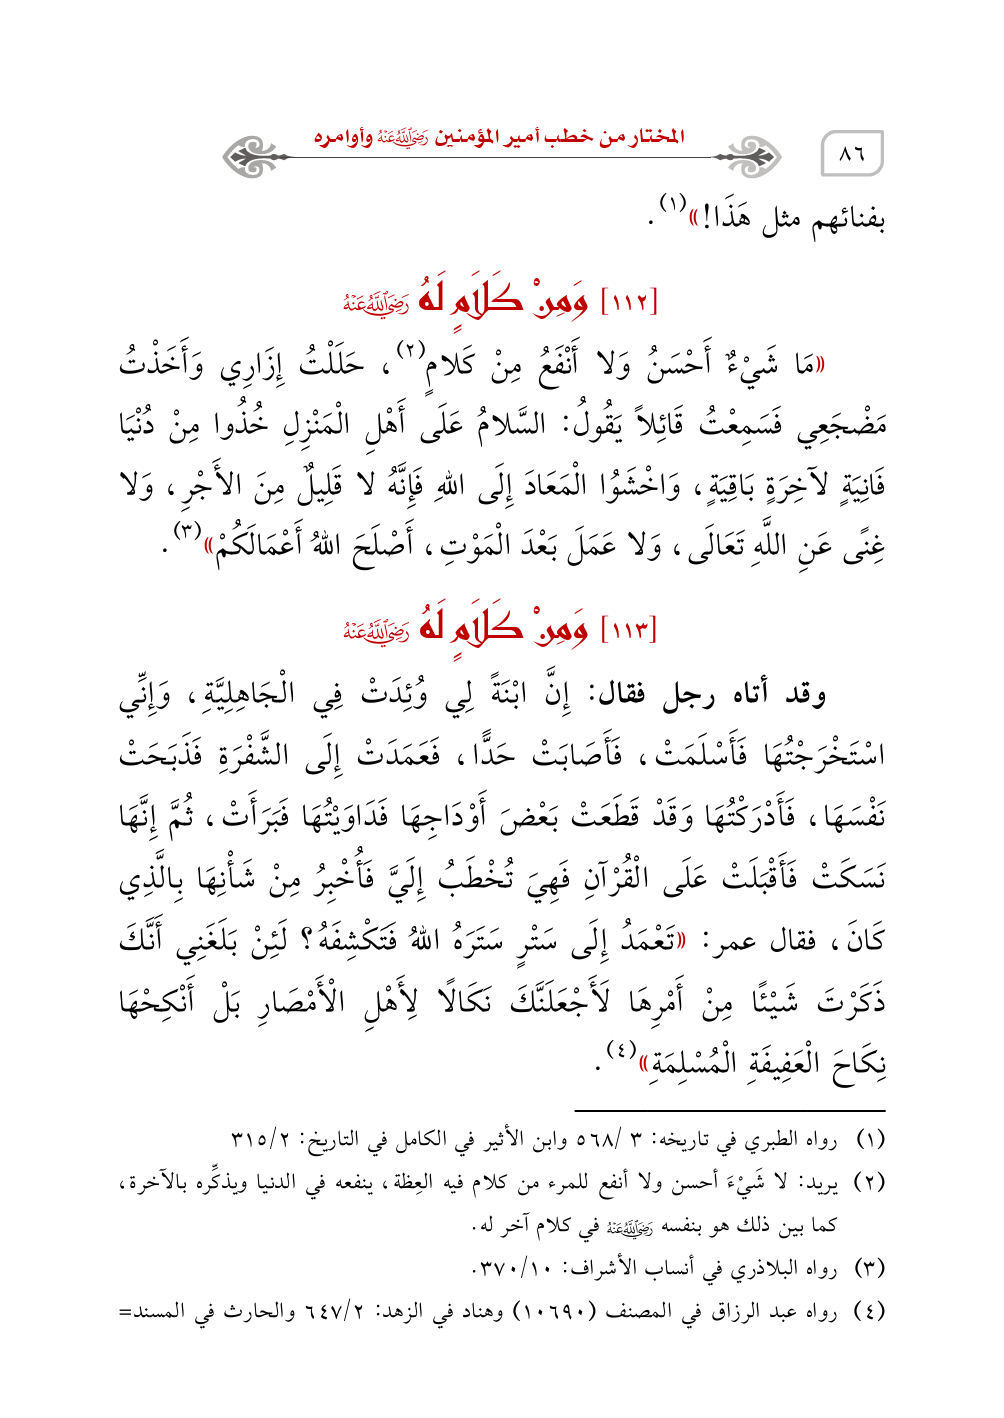 المختار من خطب أمير المؤمنين رَضِيَ اللَّهُ عَنْهُ وأوامره
٨٦
بفنائهم مثل هَذَا!»(١).
[١١٢] وَمِنْ كَلَامٍ لَهُ رَضِيَ اللَّهُ عَنْهُ
«مَا شَيْءٌ أَحْسَنُ وَلا أَنْفَعُ مِنْ كَلامٍ(٢)، حَلَلْتُ إِزَارِي وَأَخَذْتُ
مَضْجَعِي فَسَمِعْتُ قَائِلاً يَقُولُ: السَّلامُ عَلَى أَهْلِ الْمَنْزِلِ خُذُوا مِنْ دُنْيَا
فَانِيَةٍ لآخِرَةٍ بَاقِيَةٍ، وَاخْشَوُا الْمَعَادَ إِلَى اللهِ فَإِنَّهُ لا قَلِيلٌ مِنَ الأَجْرِ، وَلا
غِنًى عَنِ اللَّهِ تَعَالَى، وَلا عَمَلَ بَعْدَ الْمَوْتِ، أَصْلَحَ اللهُ أَعْمَالَكُمْ»(٣).
[١١٣] وَمِنْ كَلَامٍ لَهُ رَضِيَ اللَّهُ عَنْهُ
وقد أتاه رجل فقال: إِنَّ ابْنَةً لِي وُئِدَتْ فِي الْجَاهِلِيَّةِ، وَإِنِّي
اسْتَخْرَجْتُهَا فَأَسْلَمَتْ، فَأَصَابَتْ حَدًّا، فَعَمَدَتْ إِلَى الشَّفْرَةِ فَذَبَحَتْ
نَفْسَهَا، فَأَدْرَكْتُهَا وَقَدْ قَطَعَتْ بَعْضَ أَوْدَاجِهَا فَدَاوَيْتُهَا فَبَرَأَتْ، ثُمَّ إِنَّهَا
نَسَكَتْ فَأَقْبَلَتْ عَلَى الْقُرْآنِ فَهِيَ تُخْطَبُ إِلَيَّ فَأُخْبِرُ مِنْ شَأْنِهَا بِالَّذِي
كَانَ، فقال عمر: «تَعْمَدُ إِلَى سَتْرٍ سَتَرَهُ اللهُ فَتَكْشِفَهُ؟ لَئِنْ بَلَغَنِي أَنَّكَ
ذَكَرْتَ شَيْئًا مِنْ أَمْرِهَا لَأَجْعَلَنَّكَ نَكَالًا لِأَهْلِ الْأَمْصَارِ بَلْ أَنْكِحْهَا
نِكَاحَ الْعَفِيفَةِ الْمُسْلِمَةِ»(٤).
(١) رواه الطبري في تاريخه: ٣ /٥٦٨ وابن الأثير في الكامل في التاريخ: ٣١٥/٢
(٢) يريد: لا شَيْءَ أحسن ولا أنفع للمرء من كلام فيه العِظة، ينفعه في الدنيا ويذكِّره بالآخرة،
كما بين ذلك هو بنفسه رَضِيَ اللَّهُ عَنْهُ في كلام آخر له.
(٣) رواه البلاذري في أنساب الأشراف: ٣٧٠/١٠.
(٤) رواه عبد الرزاق في المصنف (١٠٦٩٠) وهناد في الزهد: ٦٤٧/٢ والحارث في المسند=